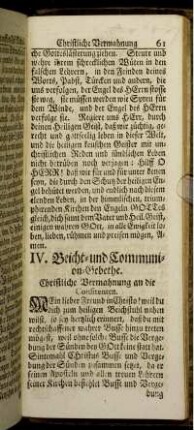 Christliche Vermahnung 61
che Gotteslästerung ziehen. Steure und
wehre ihrem schrecklichen Wüten in den
falschen Lehrern, in den Feinden deines
Worts, Pabst, Türcken und andern, die
uns verfolgen, der Engel des HErrn stosse
sie weg, sie müssen werden wie Spreu für
dem Winde, und der Engel des HErrn
verfolge sie. Regiere uns HErr, durch
deinen Heiligen Geist, daß wir züchtig, ge-
recht und gottselig leben in dieser Welt,
und die heiligen keuschen Geister mit un-
christlichen Reden und sündlichen Leben
nicht betrüben noch verjagen: Hilff O
HERR! daß wir für und für unter denen
seyn, die durch den Schutz der heiligen En-
gel behütet werden, und endlich nach diesem
elenden Leben, in der himmlischen, trium-
phirenden Kirchen den Engeln GOttes
gleich, dich samt dem Vater und Heil. Geist,
einigen wahren GOtt, in alle Ewigkeit lo-
ben, lieben, rühmen und preisen mögen, A-
men.
IV. Beicht- und Communi-
on-Gebethe.
Christliche Vermahnung an die
Confitenten.
MEin lieber Freund in Christo! weil du
dich zum heiligen Beichtstuhl nahen
wilst, so sey hertzlich erinnert, daß du mit
rechtschaffener wahrer Busse hinzu treten
mögest, weil ohne solche Busse die Verge-
bung der Sünden bey GOtt keine statt hat.
Sintemahl Christus Busse und Verge-
bung der Sünden zusammen setzet, da er
seinen Aposteln und allen treuen Lehrern
seiner Kirchen befiehlet Busse und Verge-
bung